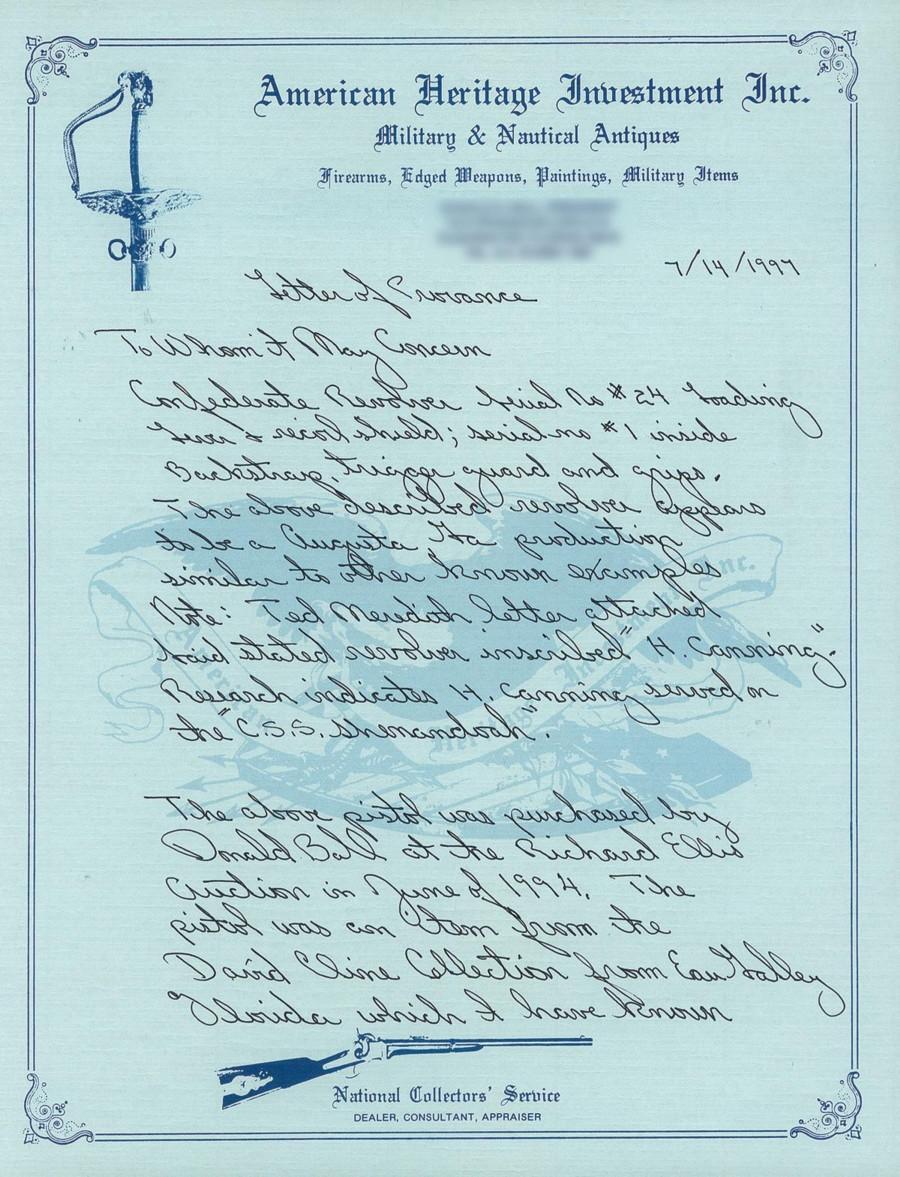 American Heritage Investment Inc.
Military & Nautical Antiques
Firearms, Edged Weapons, Paintings, Military Items
7/14/1997
Letter of Provance
To Whom it May Concern
Confederate Revolver Serial No # 24 Loading
Lever & recoil shield; serial no # 1 inside
Backstrap, trigger guard and grips.
The above described revolver appears
to be a Augusta Ga production
similar to other known examples
Note: Ted Meredith letter attached
Said stated revolver inscribed "H. Canning".
Research indicates H. Canning served on
the "C.S.S. Shenandoah".
The above pistol was purchased by
Donald Ball at the Richard Ellis
Auction in June of 1994. The
pistol was an Item from the
David Cline Collection from Eau Galley
Florida which I have known
National Collectors' Service
DEALER, CONSULTANT, APPRAISER